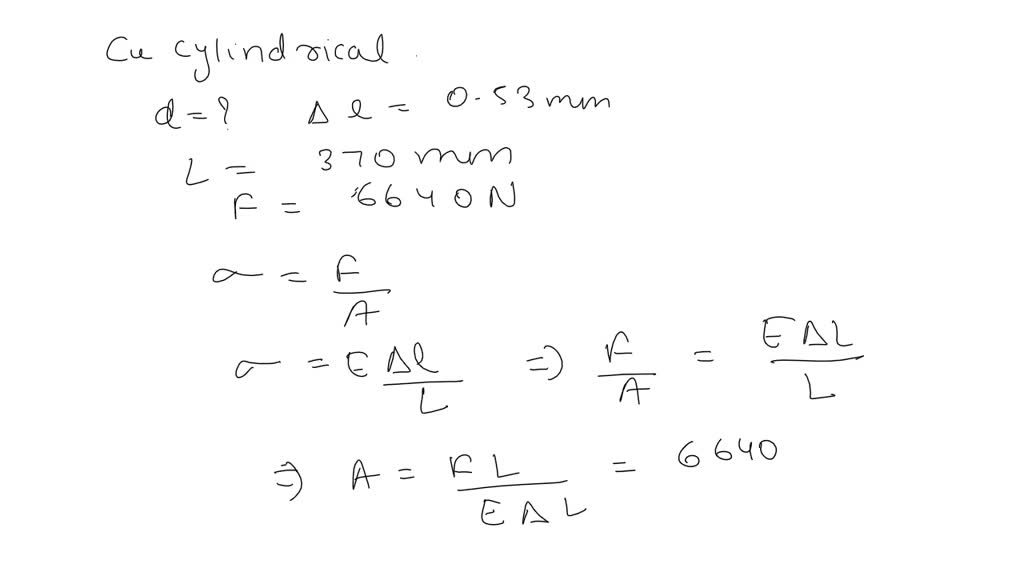 Cu cylindrical
d = ? Δl = 0.53 mm
L = 370 mm
F = 6640 N
σ = F/A
σ = E Δl/L ⇒ F/A = E ΔL/L
⇒ A = F L/E Δ L = 6640